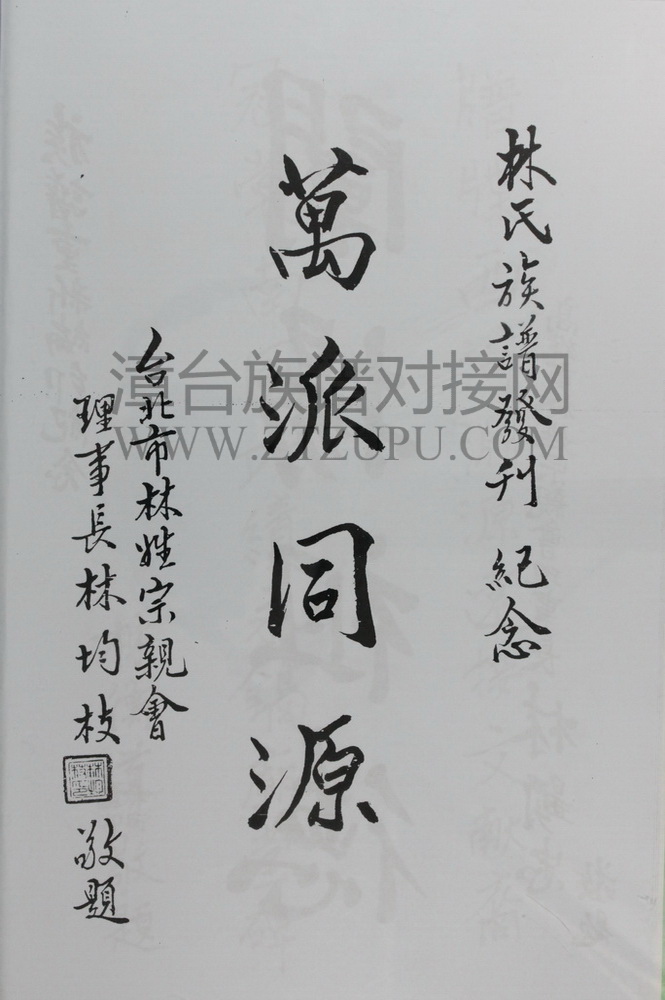 林氏族譜發刊 紀念
萬派同源
台北市林姓宗親會
理事長林均枝 敬題
漳台族谱对接网
WWW.ZTZUPU.COM